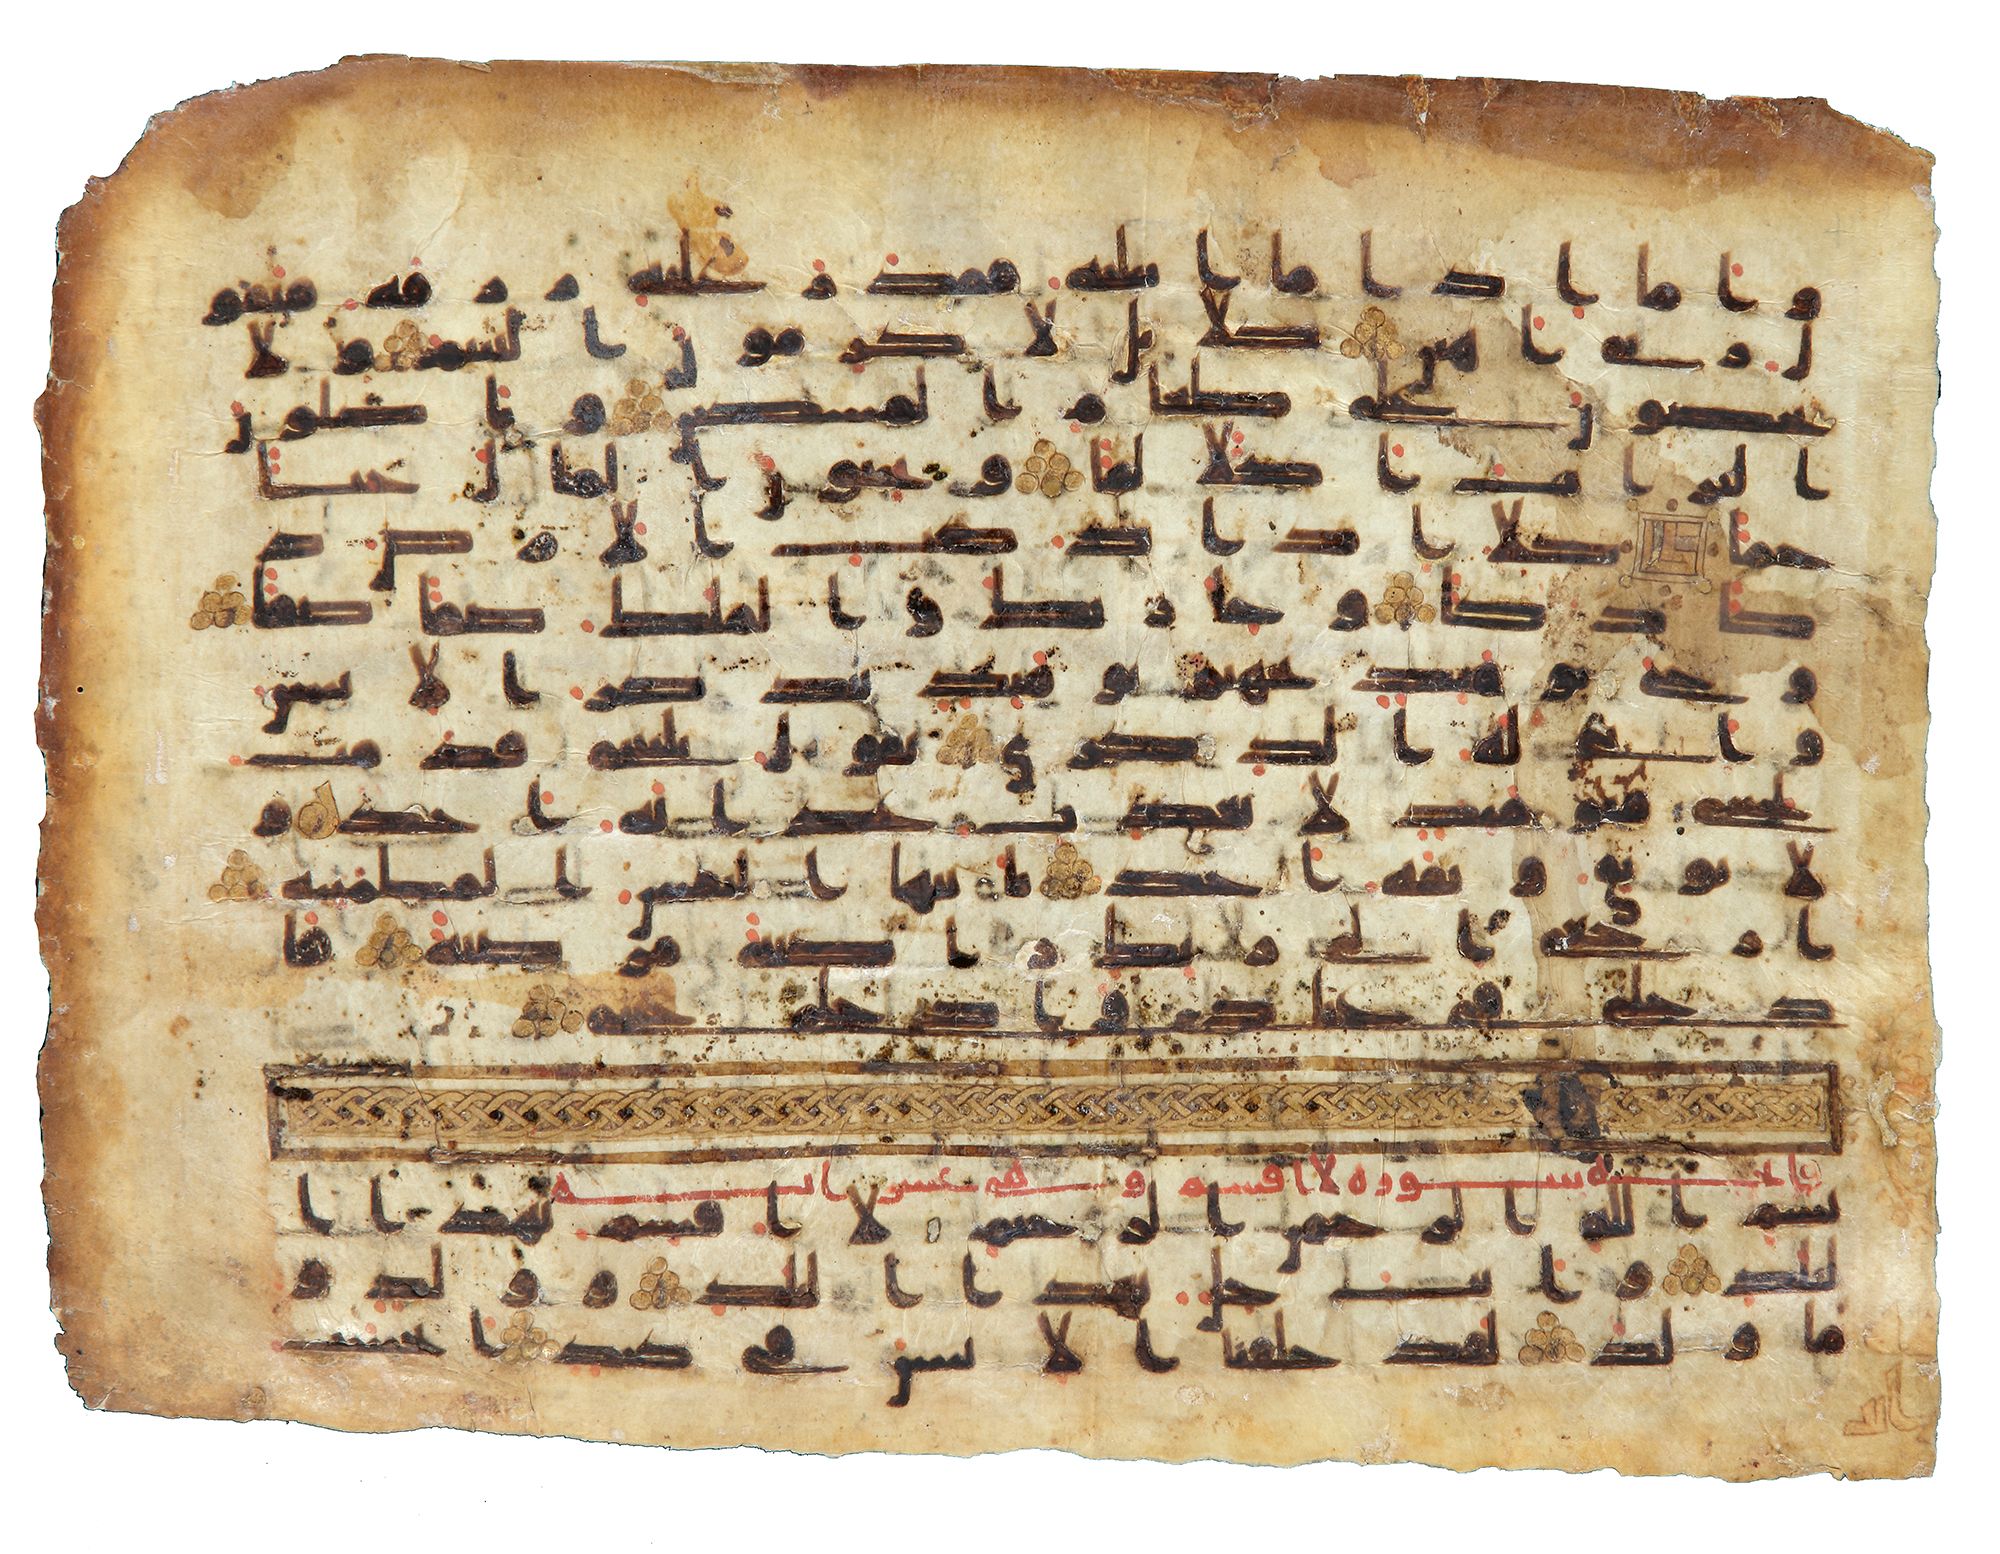 واما اذا ما ابتليه فقدر عليه رزقه فيقو
ل ربي اهنن كلا بل لا تكرمون اليتيم ولا
تحضون على طعام المسكين وتاكلون
التراث اكلا لما وتحبون المال حبا
جما كلا اذا دكت الارض د
كا دكا وجا ربك والملك صفا صفا
وجيء يومئذ بجهنم يومئذ يتذكر الانسن
وانى له الذكرى يقول يليتني قدمت
لحياتي فيومئذ لا يعذب عذابه احد و
لا يوثق وثقه احد يايتها النفس المطمئنة
ارجعي الى ربك راضية مرضية فا
دخلي في عبدي وادخلي جنتي
فاتحة سورة لا اقسم وهي عشرين اية
بسم الله الرحمن الرحيم لا اقسم بهذا ا
لبلد وانت حل بهذا البلد ووالد و
ما ولد لقد خلقنا الانسن في كبد ايحسب